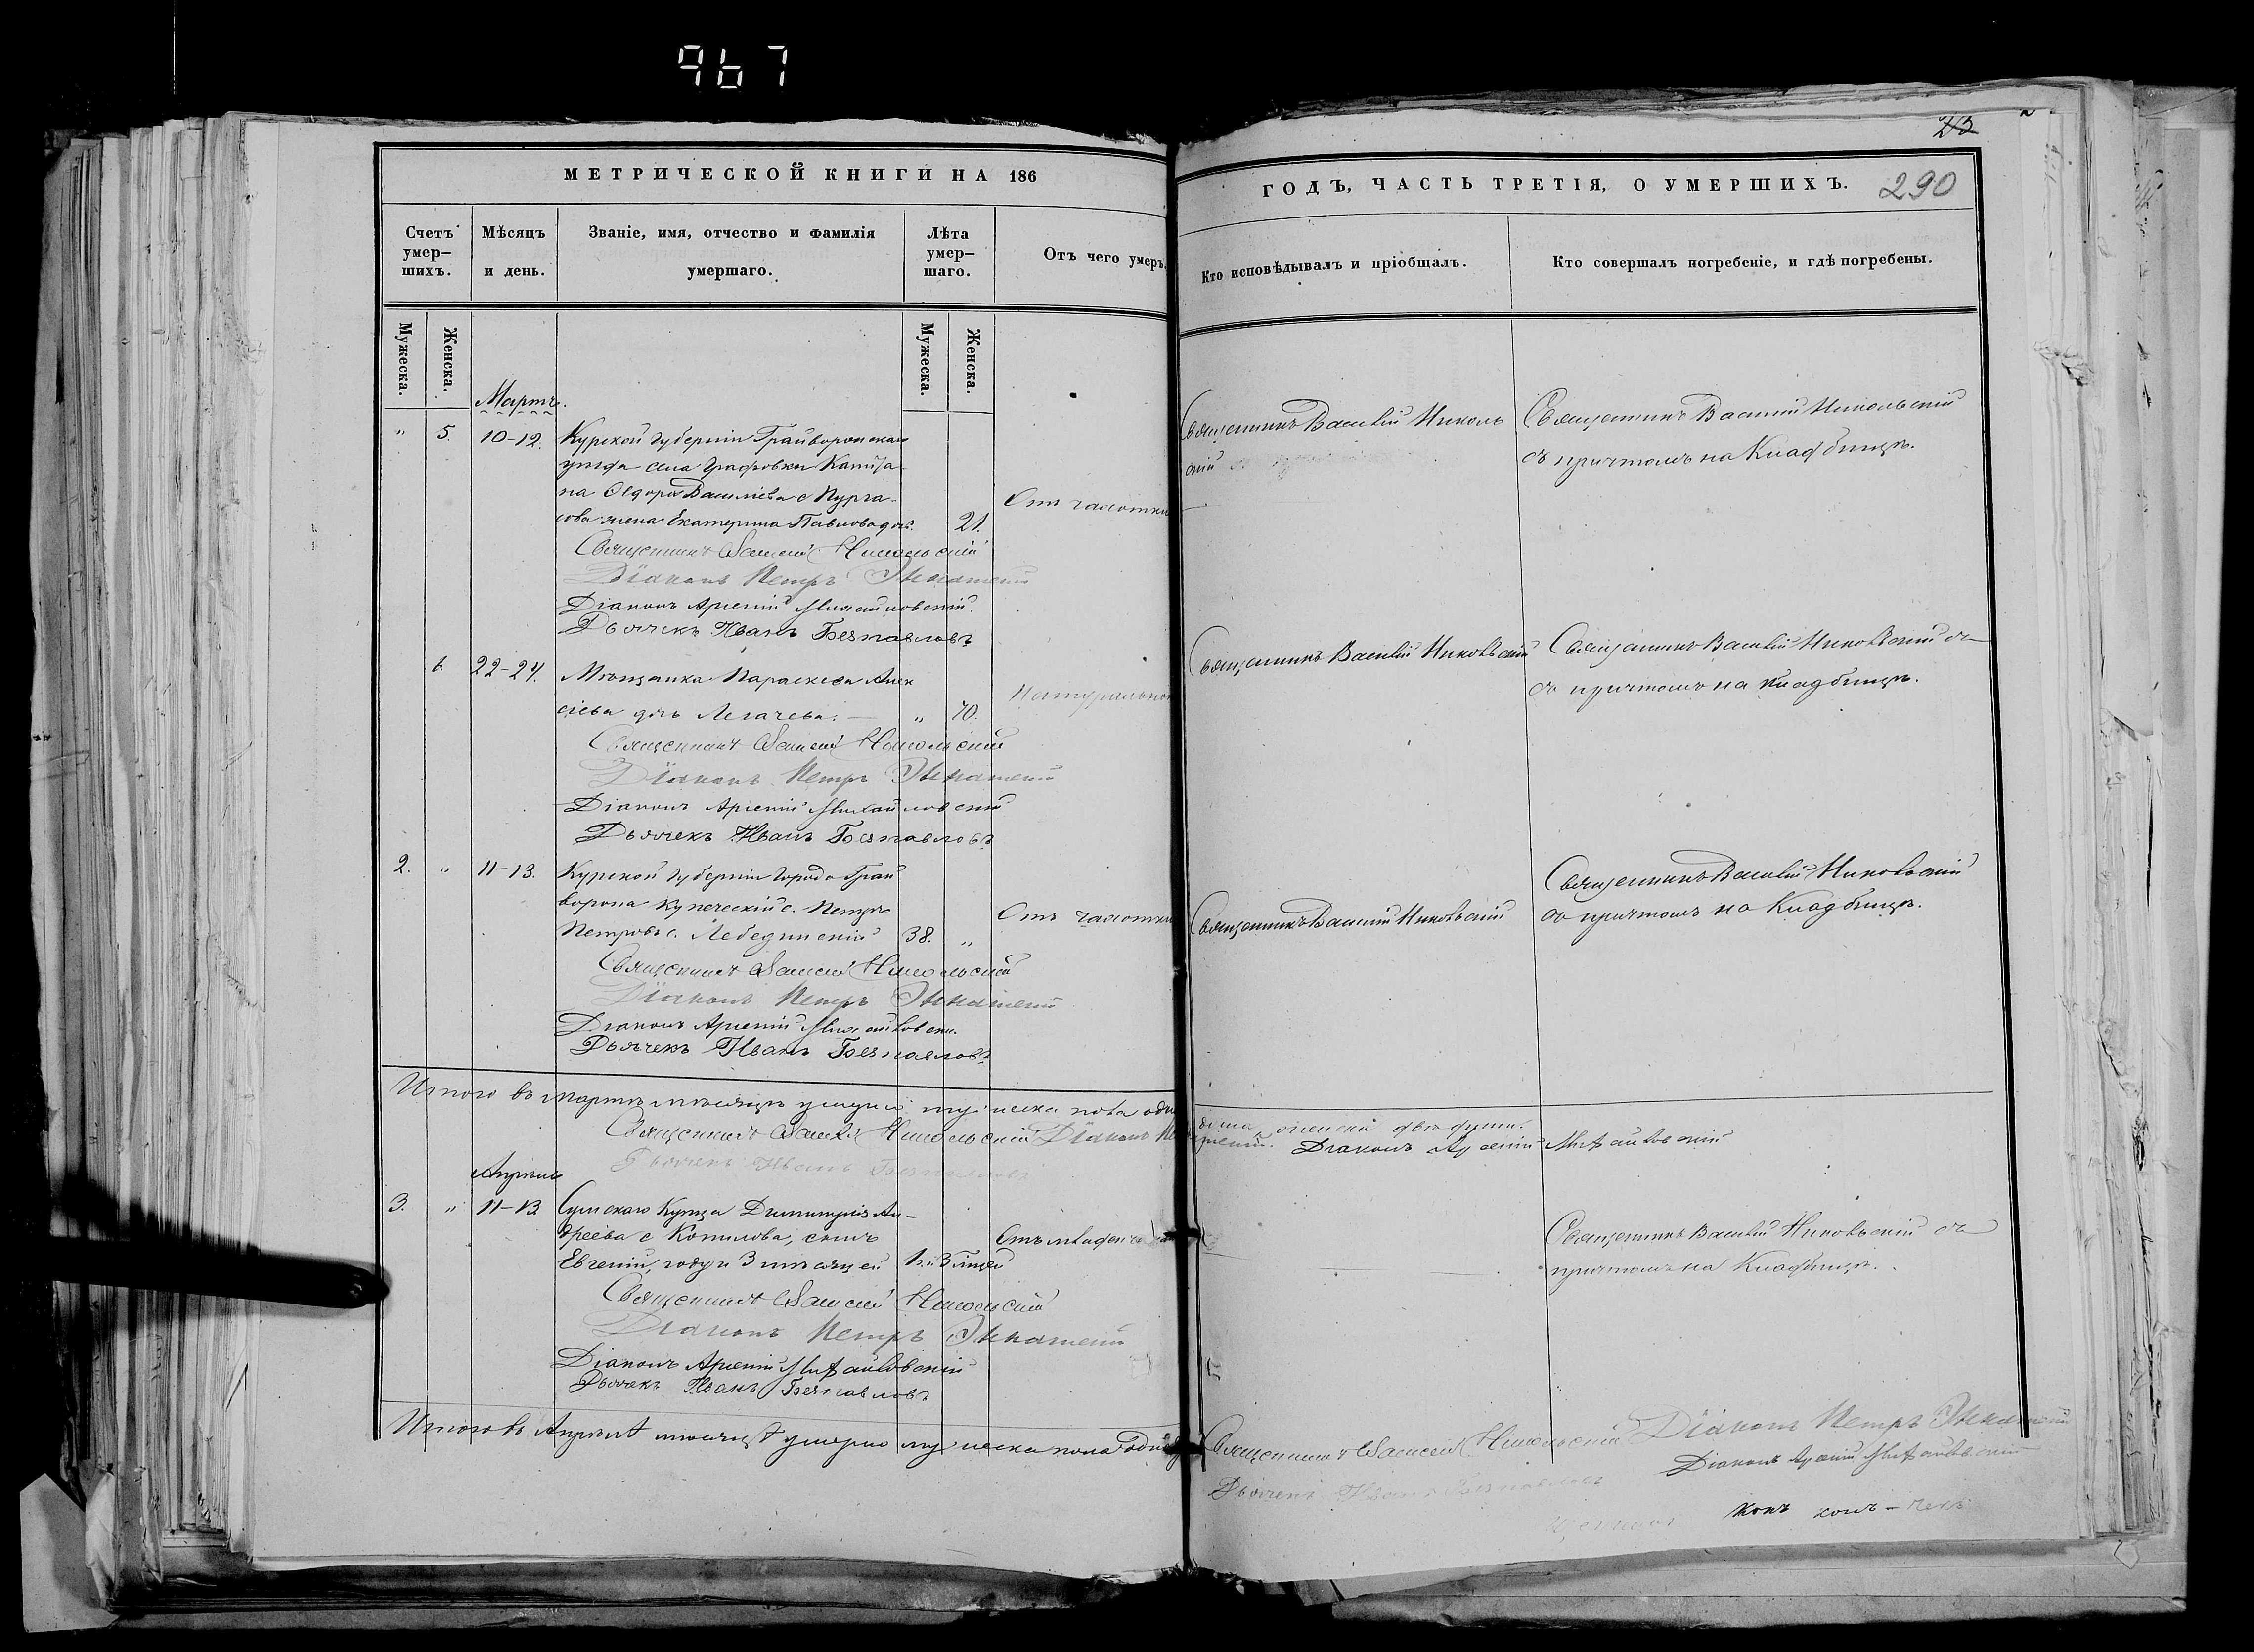 967
МЕТРИЧЕСКОЙ КНИГИ НА 186
Счетъ умер–шихъ.
Мѣсяцъ и день.
Званіе, имя, отчество и фамилія умершаго.
Лѣта умер–шаго.
Отъ чего умеръ.
Мужеска.
Женска.
Мужеска.
Женска.
Мартъ.
" 5. 10-12. Курской губерніи Грайворонскаго
уѣзда села Графовки Капита-
на Ѳедора Василіева с. Пурга-
сова жена Екатерина Павлова дочь. 21. Отъ чахотки
Священникъ Василій Никольскій
Діаконъ Петръ
Діаконъ Арсеній Михайловскій.
Дьячекъ Иванъ Безпавловъ
6 22-24. Мѣщанка Параскева Алек
сіева дочь Легачева. — " 70. Натурально
Священникъ Василій Никольскій
Діаконъ Петръ
Діаконъ Арсеній Михайловскій
Дьячекъ Иванъ Безпавловъ
2. " 11-13. Курской губерніи города Грай
ворона купеческій с. Петръ
Петровъ с. Лебединскій 38. " Отъ чахотки
Священникъ Василій Никольскій
Діаконъ Петръ
Діаконъ Арсеній Михайловскі.
Дьячекъ Иванъ Безпавловъ
Итого въ Мартѣ мѣсяцѣ умерло мужеска пола
Священникъ Василій Никольскій Діаконъ
Дьячекъ Иванъ Безпавловъ
Апрѣль
3. " 11-13 Сумскаго Купца Димитрія Ан-
дреева с. Копилова, сынъ
Евгеній, году и 3 мѣсяцей 1. и 3 мѣцей
Священникъ Василій Никольскій
Діаконъ Петръ
Діаконъ Арсеній Михайловскій
Дьячекъ Иванъ Безпавловъ
Итого въ Апрѣлѣ мѣсяцѣ умерло мужеска пола
ГОДЪ, ЧАСТЬ ТРЕТІЯ, О УМЕРШИХЪ.
290
Кто исповѣдывалъ и пріобщалъ.
Кто совершалъ погребеніе, и гдѣ погребены.
Священникъ Василій Николь
скій
Священникъ Василій Никольскій
съ причтомъ на Кладбищѣ.
Священникъ Василій Никольскій
Священникъ Василій Никольскій съ
съ причтомъ на Кладбищѣ.
Священникъ Василій Никольскій
Священникъ Василій Никольскій
съ причтомъ на Кладбищѣ.
женска двѣ души.
Діаконъ Арсеній Михайловскій
Священникъ Василій Никольскій съ
причтомъ на Кладбищѣ.
Священникъ Василій Никольскій Діаконъ Петръ
Діаконъ Арсеній Михайловскій
Дьячекъ Иванъ Безпавловъ